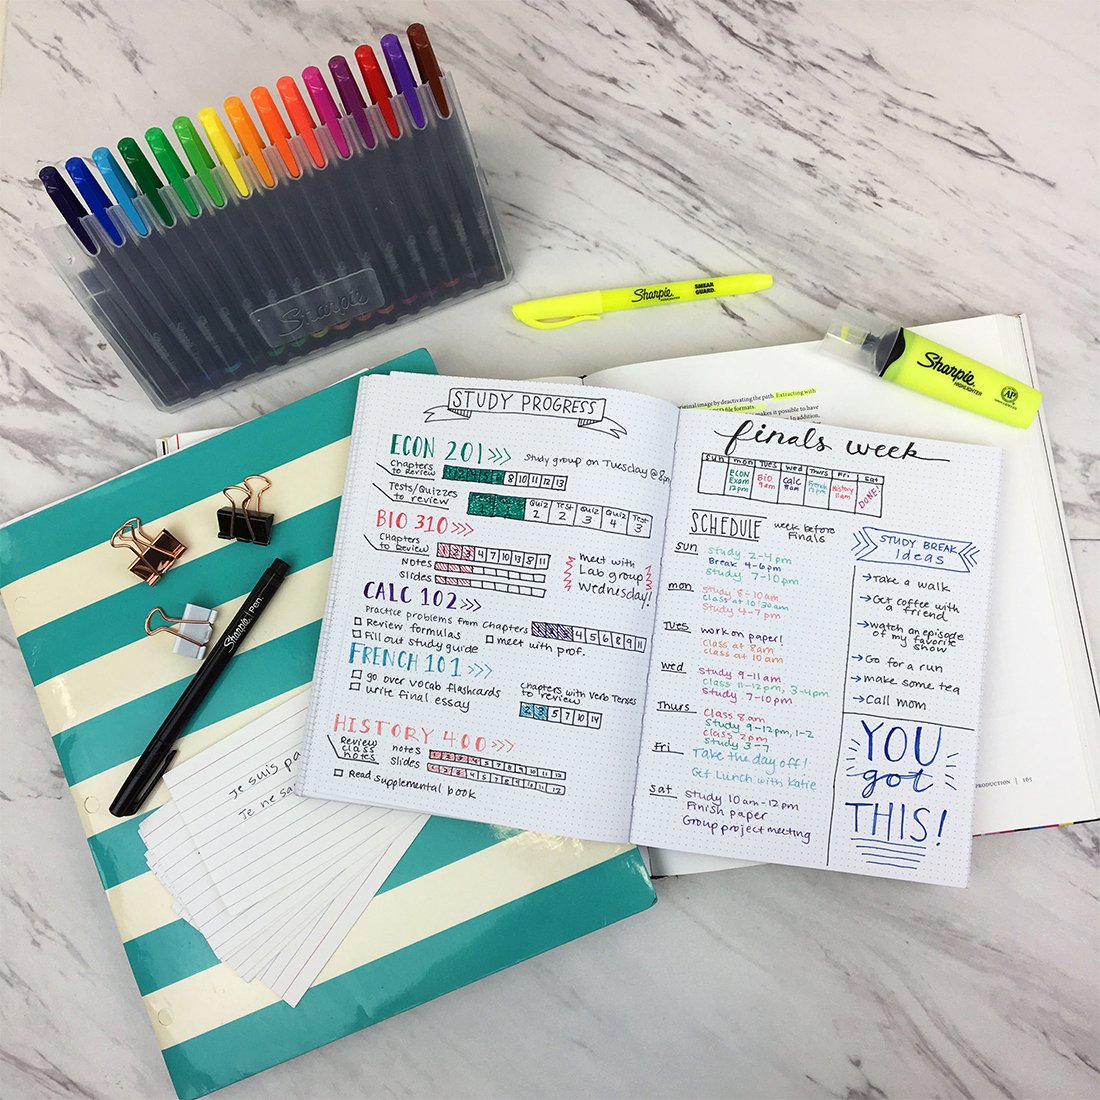 Sharpie
Sharpie
HIGHLIGHTER
SMEAR
GUARD
Sharpie
HIGHLIGHTER
AP
original image by deactivating the path. Extracting with
file formats.
makes it possible to have
In addition,
PRODUCTION | 165
Sharpie Pen.
Je suis pa
Je ne sa
STUDY PROGRESS
ECON 201 >>>
Study group on Tuesday @ 8pm
Chapters
to Review
8 10 11 12 13
Tests/Quizzes
to review
Quiz 2
Test 2
Quiz 3
Quiz 4
Test 3
BIO 310 >>>
Chapters
to Review
1 2 3 4 7 10 13 9 11
Notes
Slides
meet with
Lab group
Wednesday!
CALC 102 >>>
Practice problems from Chapters
4 5 6 8 9 11
Review formulas
meet with prof.
Fill out study guide
FRENCH 101 >>>
go over vocab flashcards
write final essay
Chapters with Verb Tenses
to review
2 3 5 7 10 14
HISTORY 400 >>>
Review
class
notes
notes
1 2 3 4 5 6 7 8 9 10 11 12
Slides
1 2 3 4 5 6 7 8 9 10 11 12
Read supplemental book
finals week
Sun
mon
Tues
Wed
Thurs
Fri
Sat
ECON
Exam
12pm
BIO
9am
CALC
8am
French
12pm
History
11am
DONE!
SCHEDULE
week before
Finals
Sun
Study 2-4pm
Break 4-6pm
Study 7-10pm
mon
Study 8-10am
Class at 10:30am
Study 4-7pm
Tues
work on paper!
Class at 8am
class at 10am
Wed
Study 9-11am
Class 11-12pm, 3-4pm
Study 7-10pm
Thurs
Class 8am
Study 9-12pm, 1-2
Class 2pm
Study 3-7
Fri
Take the day off!
Get Lunch with Katie
Sat
Study 10am-12pm
Finish paper
Group project meeting
STUDY BREAK
Ideas
→Take a walk
→Get coffee with
a friend
→watch an episode
of my favorite
show
→Go for a run
→make some tea
→Call mom
YOU
got
THIS!